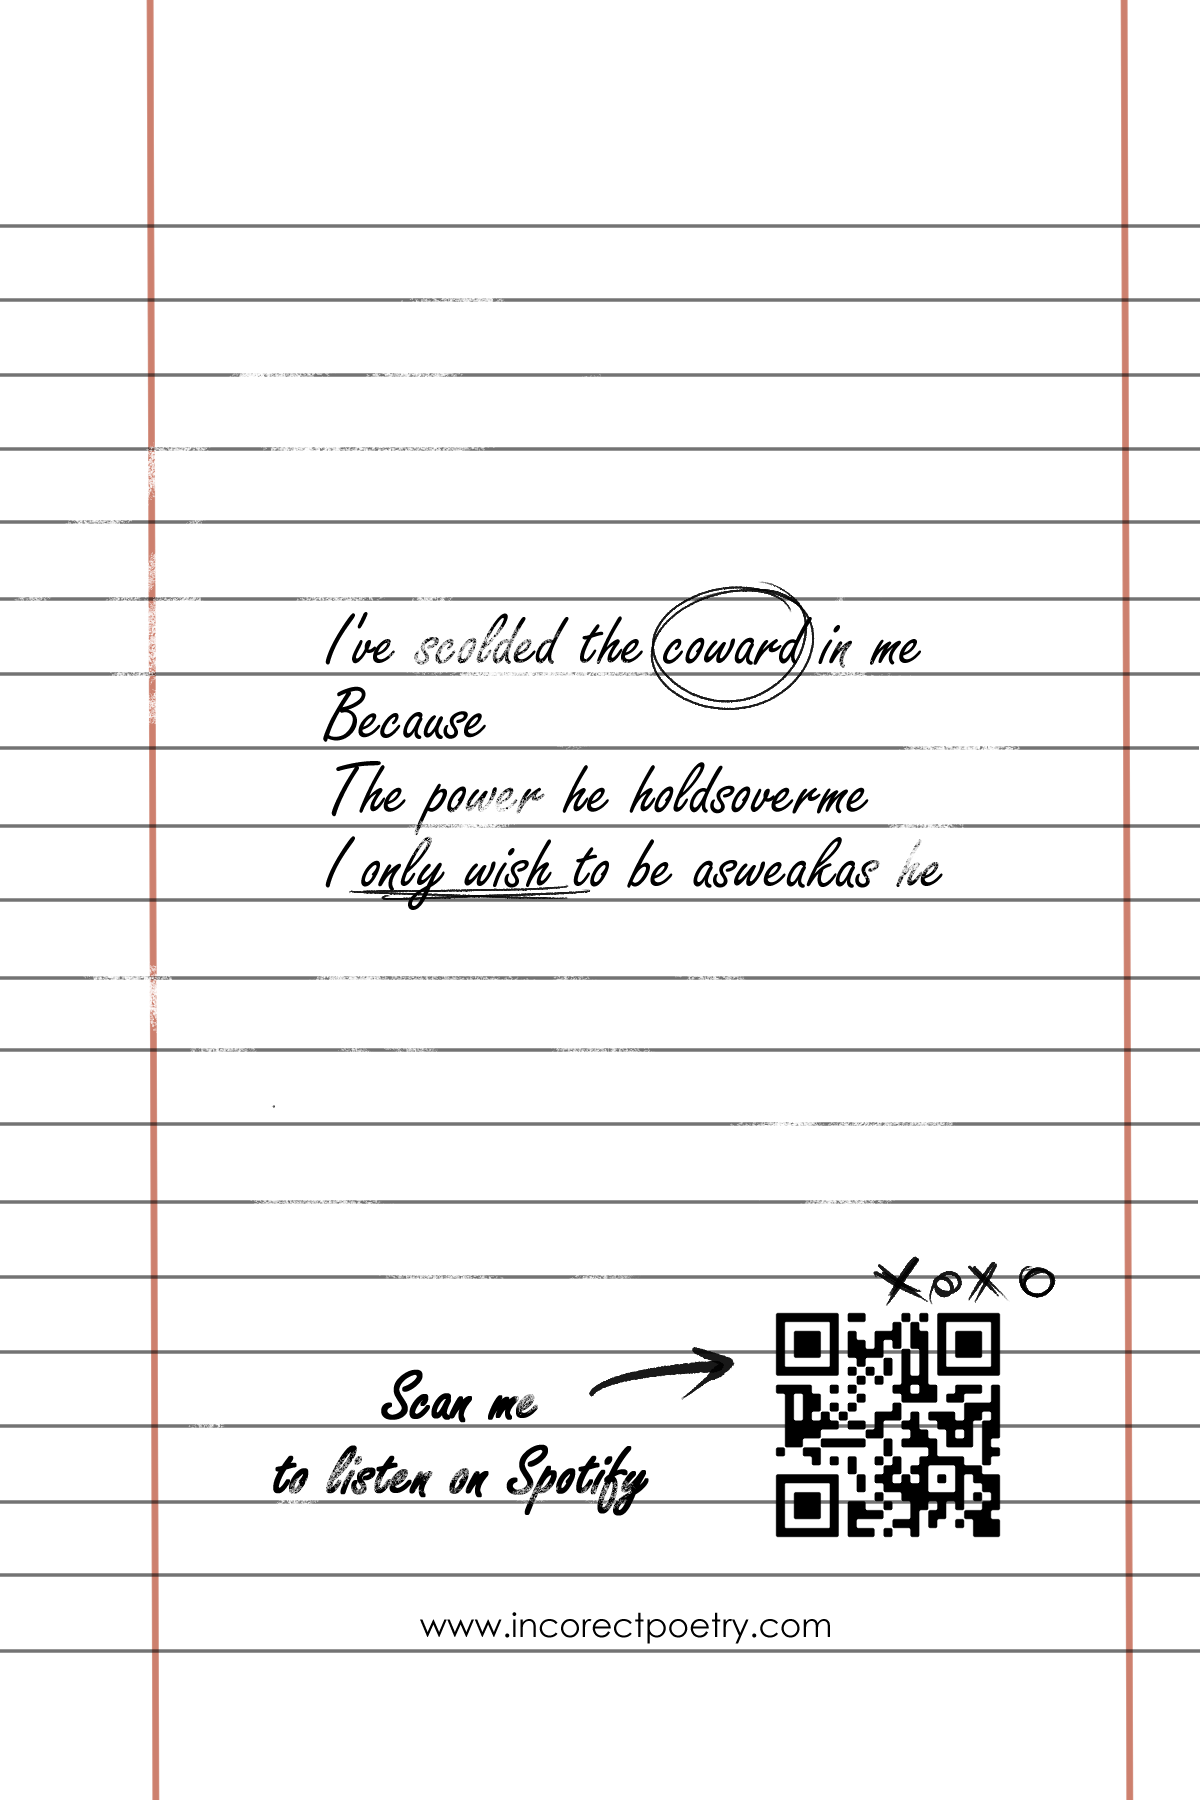 I've scolded the coward in me
Because
The power he holdsoverme
I only wish to be asweakas he
XOXO
Scan me
to listen on Spotify
www.incorectpoetry.com